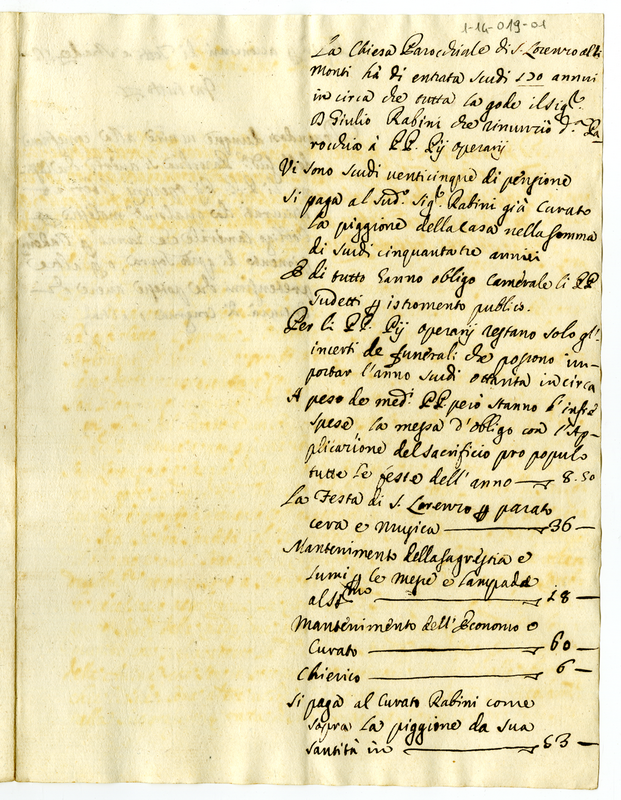 1-14-019-01
La Chiesa Parocchiale di S. Lorenzo alli
Monti hà di entrata scudi 120 annui
in circa che tutta la gode il sigr.
D Giulio Rabini che rinunziò da. Pa
rocchia à PP. Pij operarij
Vi sono scudi venticinque di pensione
Si paga al sudo. Sigr. Rabini già Curato
la piggione della Casa nella somma
di scudi cinquantatre annui
E di tutto hanno obligo Camerale li PP
sudetti istromento publico.
Per li PP. Pij operarij restano solo gl'
incerti de funerali che possono im-
portar l'anno scudi ottanta in circa
A peso de medi. PP. però stanno l'infra
spese. La messa d'obligo con l'Ap-
plicazione del sacrificio pro populo
tutte le feste dell'anno — 8.50
La Festa di S. Lorenzo parato
cera e musica — 36 —
Mantenimento della sagrestia e
lumi le messe e lampada
al SSmo — 18 —
Mantenimento dell'Economo o
Curato — 60 —
Chierico — 6 —
Si paga al Curato Rabini come
sopra la piggione da sua
santità in — 53 —